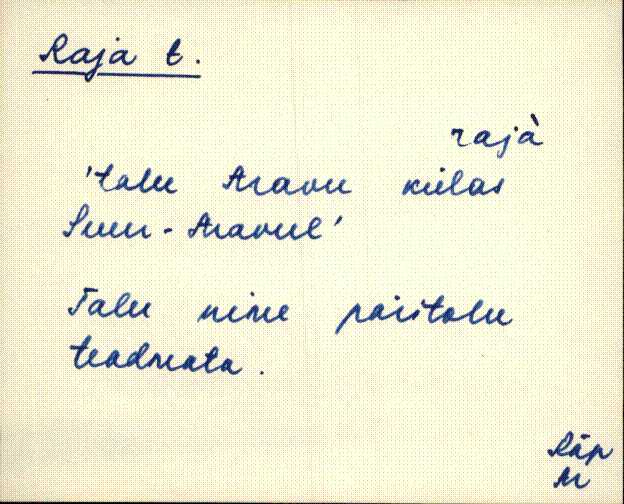 Raja t.
rajà
'talu Aravu külas
Suur-Aravul'
Talu nime päritolu
teadmata.
Räp
Ar